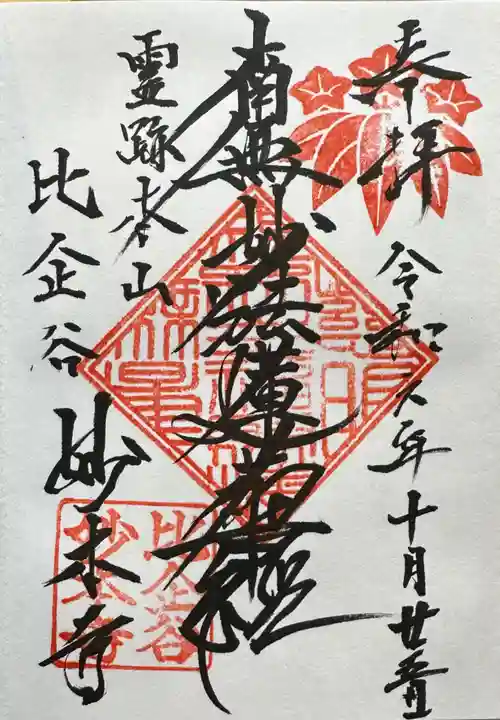 奉拝
令和六年十月廿
南無妙法蓮華経
霊跡本山
比企谷 妙本寺
比企谷
妙本寺